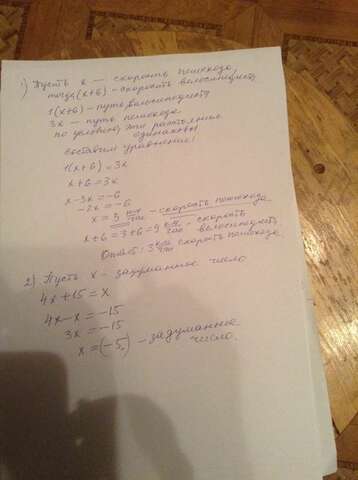 1) Пусть x — скорость пешехода,
тогда (x+6) — скорость велосипедиста
1(x+6) — путь велосипедиста
3x — путь пешехода
по условию, эти расстояния
одинаковы
составим уравнение:
1(x+6) = 3x
x+6 = 3x
x-3x = -6
-2x = -6
x = 3 км/час - скорость пешехода
x+6 = 3+6 = 9 км/час - скорость
велосипедиста
Ответ: 3 км/час скорость пешехода.
2) Пусть x - задуманное число
4x+15 = x
4x-x = -15
3x = -15
x = (-5) - задуманное
число.